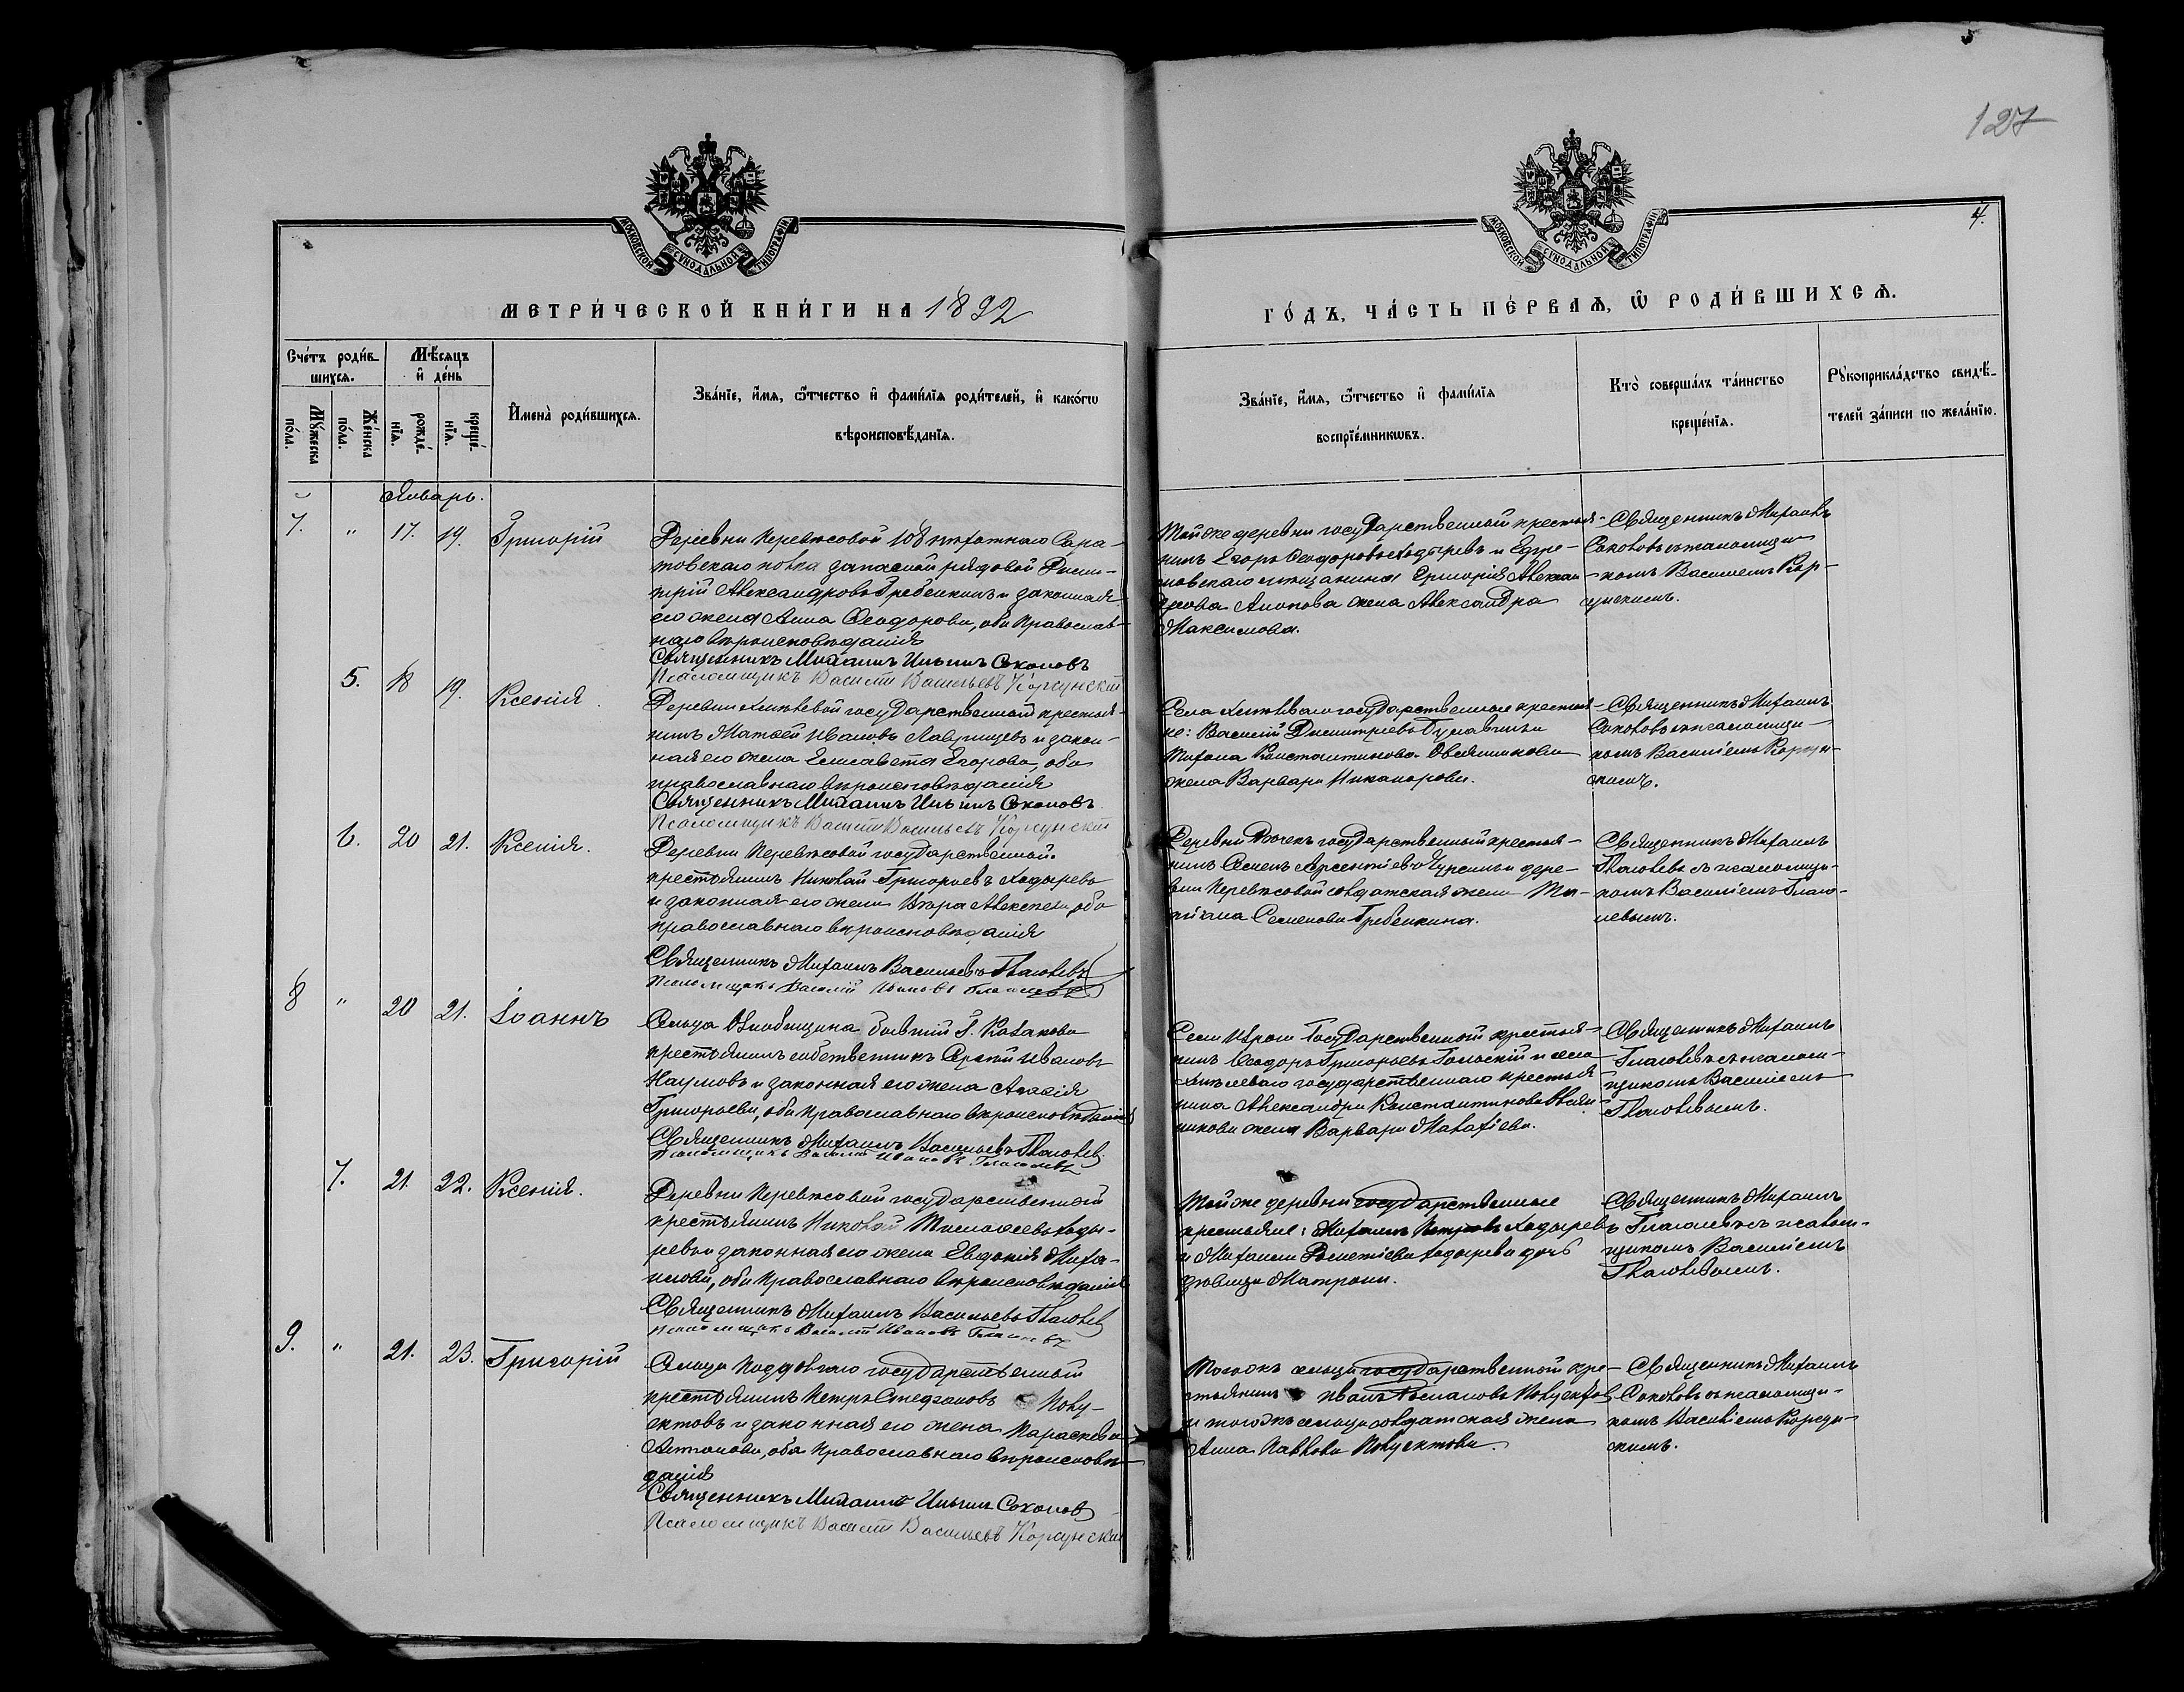 127
4.
МОСКОВСКОЙ СУНОДАЛЬНОЙ ТИПОГРАФІИ
МОСКОВСКОЙ СУНОДАЛЬНОЙ ТИПОГРАФІИ
МЕТРИ́ЧЕСКОЙ КНИ́ГИ НА 1892
ГО́ДЪ, ЧА́СТЬ ПЕ́РВАѦ, Ѽ РОДИ́ВШИХСѦ.
Сче́тъ роди́в-
шихсѧ.
Мѣ́сѧцъ
и де́нь
Мꙋ́жеска
по́ла.
Же́нска
по́ла.
рожде́-
нїѧ.
креще́-
нїѧ.
Имена̀ роди́вшихсѧ.
Зва́нїе, и́мѧ, ѻ́тчество и фами́лїѧ роди́телей, и како́гѡ
вѣроисповѣ́данїѧ.
Зва́нїе, и́мѧ, ѻ́тчество и фами́лїѧ
воспрїе́мникѡвъ.
Кто̀ соверша́лъ та́инство
креще́нїѧ.
Рꙋкоприкла́дство свидѣ́-
телей за́писи по жела́нїю.
Январь.
7. " 17. 19. Григорій
Деревни Перевѣсовой 108 пѣхотнаго Сара-
товскаго полка запасной рядовой Дими-
трій Александровъ Гребенкинъ и законная
его жена Анна Ѳеодорова, оба Православ-
наго вѣроисповѣданія
Священникъ Михаилъ Ильинъ Соколовъ
Псаломщикъ Василій Васильевъ Корсунскій
Той же деревни государственный крестья-
нинъ Егоръ Ѳеодоровъ Ходыревъ и Ефре-
мовскаго мѣщанина Григорія Алексан-
дрова жена Александра
Максимова.
Священникъ Михаилъ
Соколовъ съ псаломщи-
комъ Василіемъ Кор-
сунскимъ.
5. 18 19. Ксенія
Деревни государственный крестья-
нинъ Матѳей Ивановъ и закон-
ная его жена Елисавета Егорова, оба
православнаго вѣроисповѣданія
Священникъ Михаилъ Ильинъ Соколовъ
Псаломщикъ Василій Васильевъ Корсунскій
Села государственные крестья-
не: Василій Димитріевъ и
Константинова Овсянникова
жена Варвара Никанорова.
Священникъ Михаилъ
Соколовъ съ псаломщи-
комъ Василіемъ Корсун-
скимъ.
6. 20 21. Ксенія.
Деревни Перевѣсовой государственный
крестьянинъ Николай Григорьевъ Ходыревъ
и законная его жена Вѣра Алексѣева, оба
православнаго вѣроисповѣданія
Священникъ Михаилъ Васильевъ Глаголевъ
Псаломщикъ Василій Ивановъ Глаголевъ
Деревни государственный крестья-
нинъ Семенъ Арсентіевъ и дере-
вни Перевѣсовой солдатская жена Та-
тіана Семенова Гребенкина.
Священникъ Михаилъ
Глаголевъ съ псаломщи-
комъ Василіемъ Глаго-
левымъ.
8 " 20 21. Іоаннъ
Сельца бывшій Г. Казакова
крестьянинъ собственникъ Сергій Ивановъ
Наумовъ и законная его жена
Григорьева, оба православнаго вѣроисповѣданія
Священникъ Михаилъ Васильевъ Глаголевъ
Псаломщикъ Василій Ивановъ Глаголевъ
Села Государственный крестья-
нинъ Ѳеодоръ Григорьевъ и села
государственнаго крестья-
нина Александра Константинова Овсян-
никова жена Варвара
Священникъ Михаилъ
Глаголевъ съ псалом-
щикомъ Василіемъ
Глаголевымъ.
7. 21. 22. Ксенія.
Деревни Перевѣсовой государственный
крестьянинъ Николай Тимоѳеевъ Ходы-
ревъ и законная его жена Евдокія Миха-
илова, оба Православнаго вѣроисповѣданія
Священникъ Михаилъ Васильевъ Глаголевъ
Псаломщикъ Василій Ивановъ Глаголевъ
Той же деревни государственные
крестьяне: Михаилъ Петровъ Ходыревъ
и Михаила Ходырева дочь
дѣвица Матрона.
Священникъ Михаилъ
Глаголевъ съ псалом-
щикомъ Василіемъ
Глаголевымъ.
9. " 21. 23. Григорій
Сельца государственный
крестьянинъ Петръ Стефановъ Полу-
ектовъ и законная его жена Параскева
Антонова, оба Православнаго вѣроисповѣ-
данія
Священникъ Михаилъ Ильинъ Соколовъ
Псаломщикъ Василій Васильевъ Корсунскій
Того жъ сельца государственный кре-
стьянинъ Иванъ Полуектовъ
и того жъ сельца солдатская жена
Анна Павлова Полуектова.
Священникъ Михаилъ
Соколовъ съ псаломщи-
комъ Василіемъ Корсун-
скимъ.